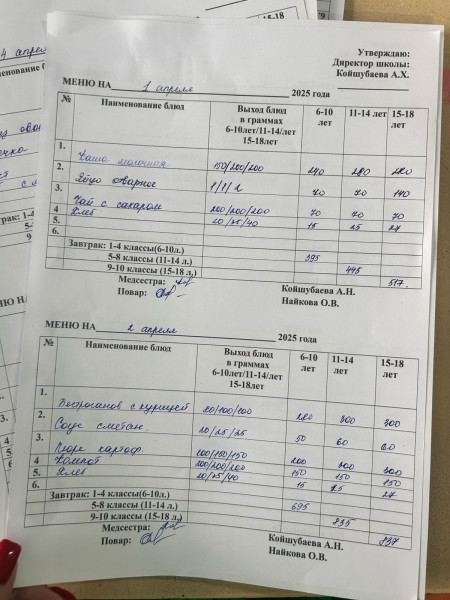 Утверждаю:
Директор школы:
Койшубаева А.Х.
МЕНЮ НА 1 апреля 2025 года
№ Наименование блюд Выход блюд в граммах 6-10лет/11-14/лет 15-18лет 6-10 лет 11-14 лет 15-18 лет
1. Каша молочная 150/200/200 240 280 280
2. Яйцо отварное 1/1/2 70 70 140
3. Чай с сахаром 200/200/200 70 70 70
4 Хлеб 20/25/40 15 25 27
5.
6.
Завтрак: 1-4 классы(6-10л.) 395
5-8 классы (11-14 л.) 445
9-10 классы (15-18 л.) 517.
Медсестра: Койшубаева А.Н.
Повар: Найкова О.В.
МЕНЮ НА 2 апреля 2025 года
№ Наименование блюд Выход блюд в граммах 6-10лет/11-14/лет 15-18лет 6-10 лет 11-14 лет 15-18 лет
1. Бефстроганов с курицей 300 300
2. Соус сметан. 20/25/25 50 60 60
3. Пюре картоф. 100/150/150 200 300 300
4 Компот 200/200/200 150 150 150
5. Хлеб 20/25/40 15 25 27
6.
Завтрак: 1-4 классы(6-10л.) 695
5-8 классы (11-14 л.) 835
9-10 классы (15-18 л.) 837
Медсестра: Койшубаева А.Н.
Повар: Найкова О.В.